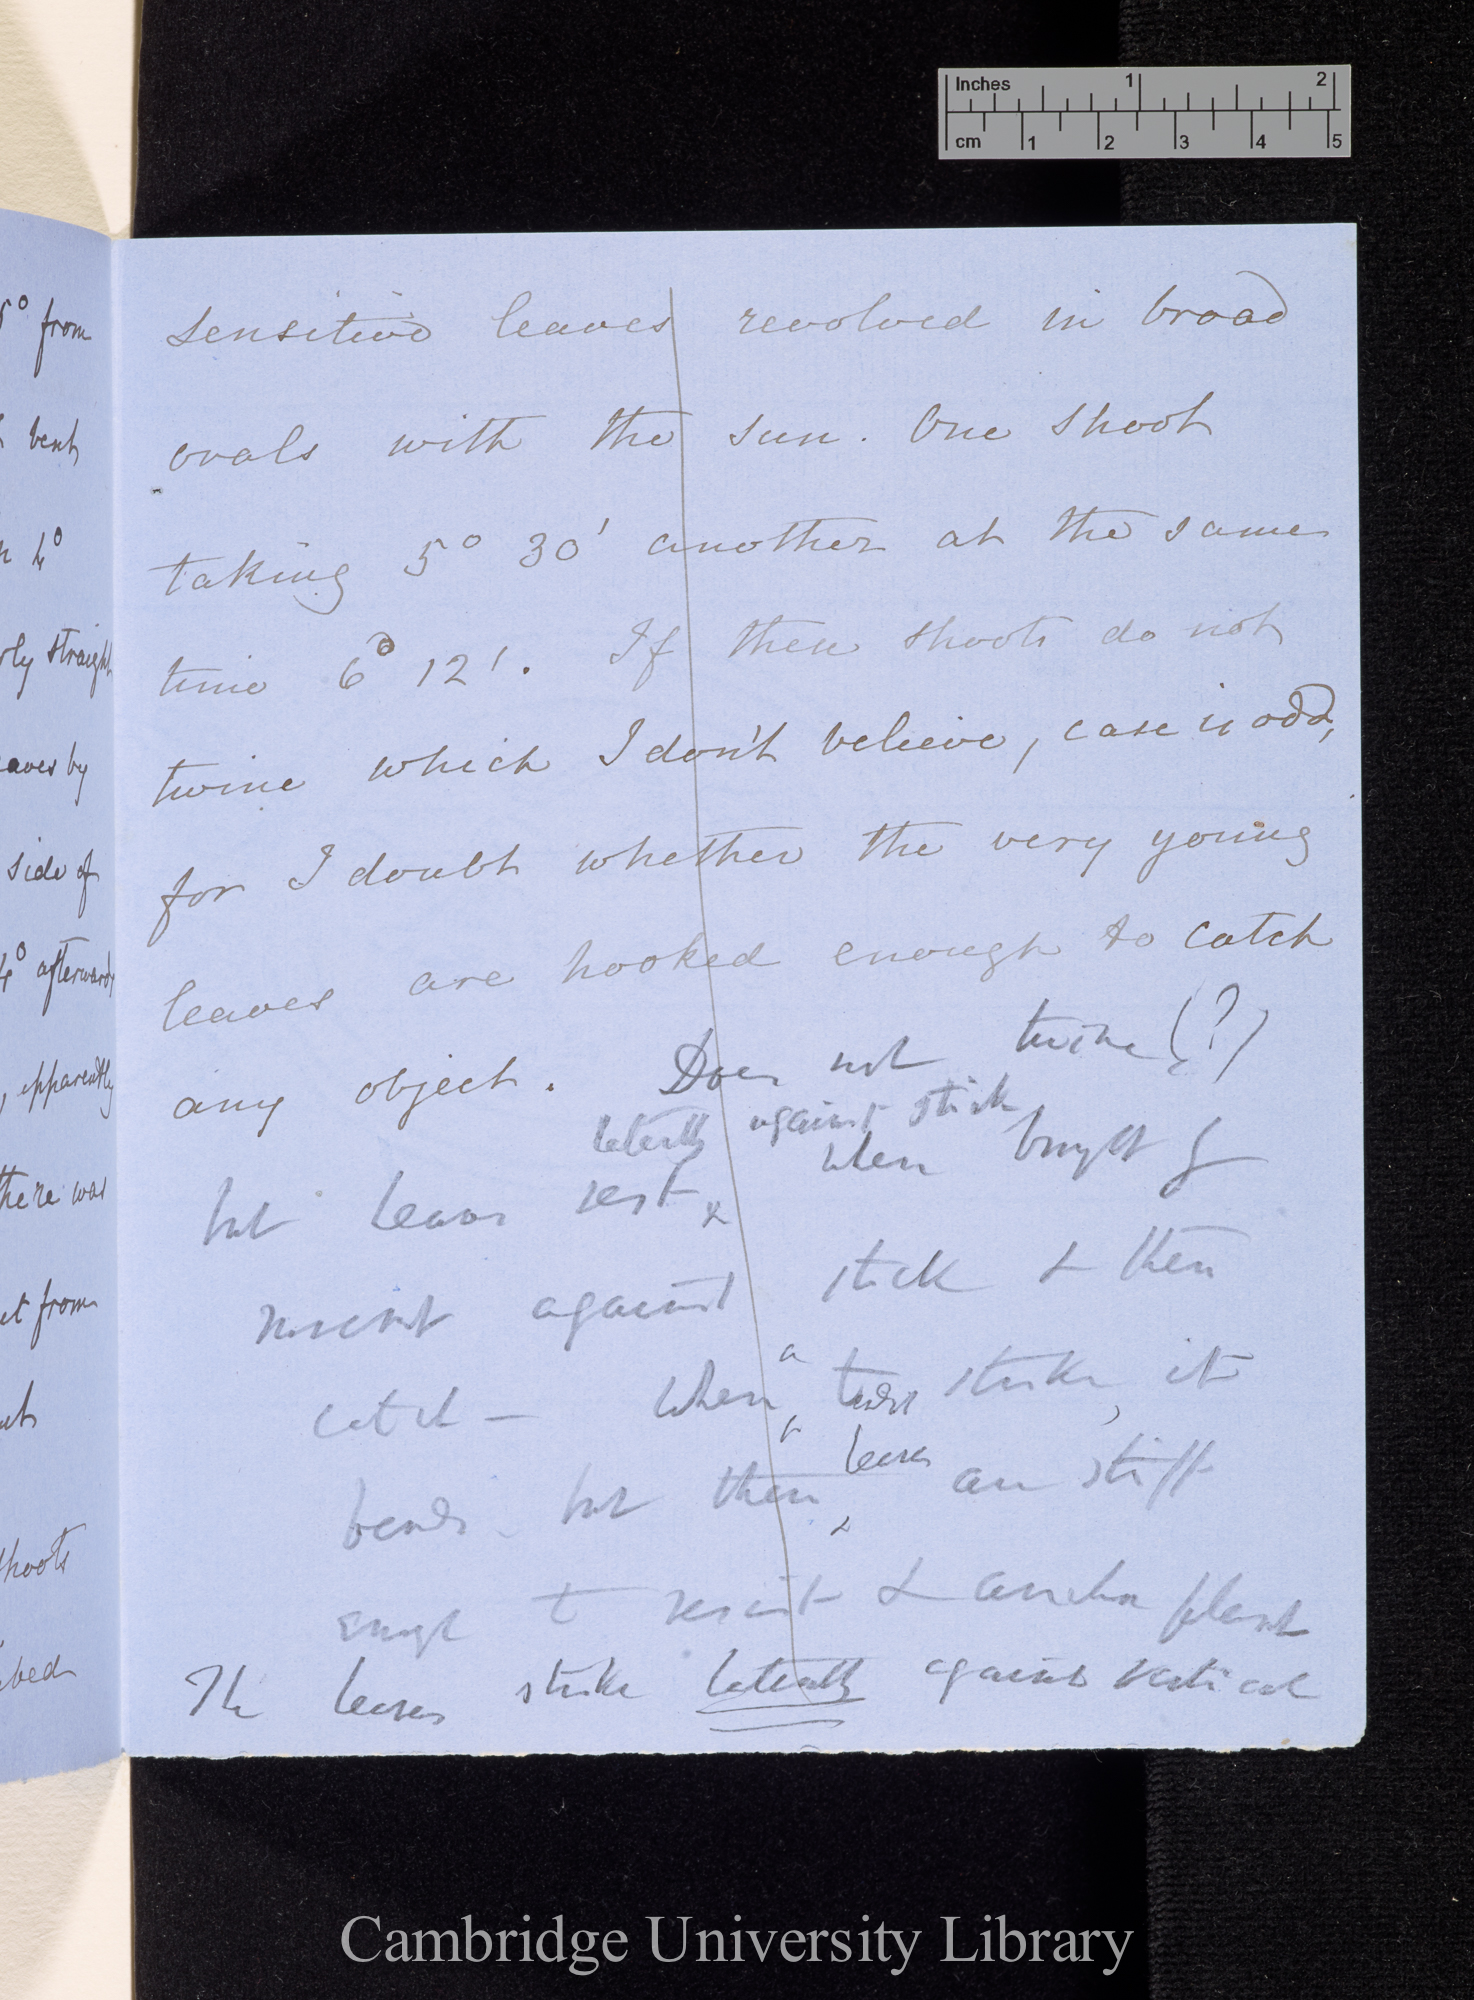 Inches 1 2
cm 1 2 3 4 5
5° from
bent
4°
straight
leaves by
side of
4° afterwards
, apparently
there was
from
shoots
sensitive leaves revolved in broad
ovals with the sun. One shoot
taking 5° 30' another at the same
time 6° 12'. If these shoots do not
twine which I don't believe, case is odd,
for I doubt whether the very young
leaves are hooked enough to catch
any object. Does not twine (?)
laterally against stick
but leaves rest when brought
against stick & then
catch — When a strike, it
leaves
bends but then are stiff
to resist & anchor plant
The leaves strike laterally against vertical
Cambridge University Library